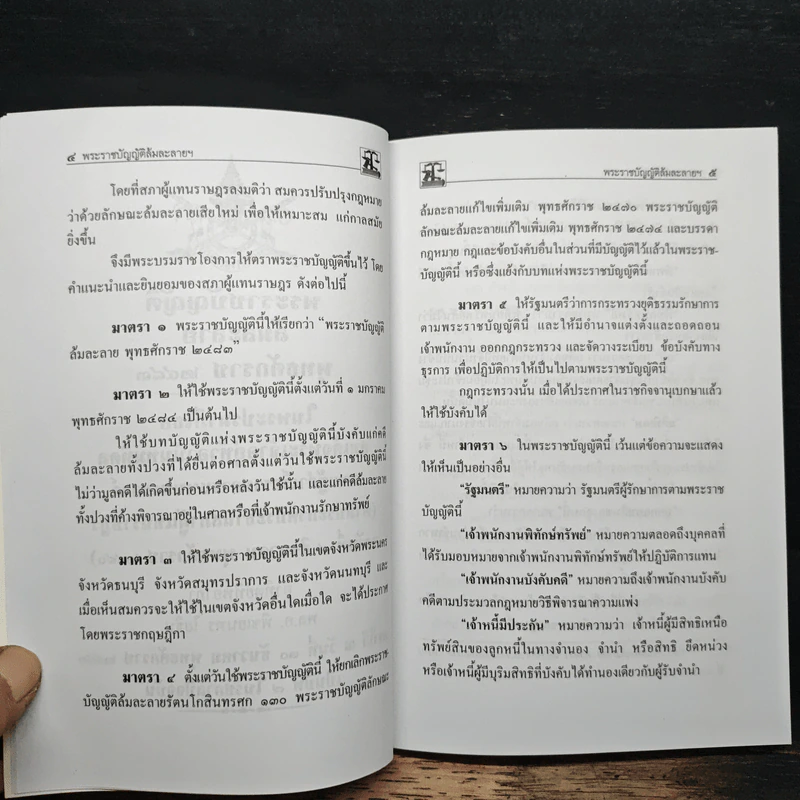 ๔ พระราชบัญญัติล้มละลายฯ
โดยที่สภาผู้แทนราษฎรลงมติว่า สมควรปรับปรุงกฎหมาย
ว่าด้วยลักษณะล้มละลายเสียใหม่ เพื่อให้เหมาะสม แก่กาลสมัย
ยิ่งขึ้น
จึงมีพระบรมราชโองการให้ตราพระราชบัญญัติขึ้นไว้ โดย
คำแนะนำและยินยอมของสภาผู้แทนราษฎร ดังต่อไปนี้
มาตรา ๑ พระราชบัญญัตินี้ให้เรียกว่า "พระราชบัญญัติ
ล้มละลาย พุทธศักราช ๒๔๘๓"
มาตรา ๒ ให้ใช้พระราชบัญญัตินี้ตั้งแต่วันที่ ๑ มกราคม
พุทธศักราช ๒๔๘๔ เป็นต้นไป
ให้ใช้บทบัญญัติแห่งพระราชบัญญัตินี้บังคับแก่คดี
ล้มละลายทั้งปวงที่ได้ยื่นต่อศาลตั้งแต่วันใช้พระราชบัญญัตินี้
ไม่ว่ามูลคดีได้เกิดขึ้นก่อนหรือหลังวันใช้นั้น และแก่คดีล้มละลาย
ทั้งปวงที่ค้างพิจารณาอยู่ในศาลหรือที่เจ้าพนักงานรักษาทรัพย์
มาตรา ๓ ให้ใช้พระราชบัญญัตินี้ในเขตจังหวัดพระนคร
จังหวัดธนบุรี จังหวัดสมุทรปราการ และจังหวัดนนทบุรี และ
เมื่อเห็นสมควรจะให้ใช้ในเขตจังหวัดอื่นใดเมื่อใด จะได้ประกาศ
โดยพระราชกฤษฎีกา
มาตรา ๔ ตั้งแต่วันใช้พระราชบัญญัตินี้ ให้ยกเลิกพระราช
บัญญัติล้มละลายรัตนโกสินทรศก ๑๓๐ พระราชบัญญัติลักษณะ
พระราชบัญญัติล้มละลายฯ ๕
ล้มละลายแก้ไขเพิ่มเติม พุทธศักราช ๒๔๗๐ พระราชบัญญัติ
ลักษณะล้มละลายแก้ไขเพิ่มเติม พุทธศักราช ๒๔๗๔ และบรรดา
กฎหมาย กฎและข้อบังคับอื่นในส่วนที่มีบัญญัติไว้แล้วในพระราช-
บัญญัตินี้ หรือซึ่งแย้งกับบทแห่งพระราชบัญญัตินี้
มาตรา ๕ ให้รัฐมนตรีว่าการกระทรวงยุติธรรมรักษาการ
ตามพระราชบัญญัตินี้ และให้มีอำนาจแต่งตั้งและถอดถอน
เจ้าพนักงาน ออกกฎกระทรวง และจัดวางระเบียบ ข้อบังคับทาง
ธุรการ เพื่อปฏิบัติการให้เป็นไปตามพระราชบัญญัตินี้
กฎกระทรวงนั้น เมื่อได้ประกาศในราชกิจจานุเบกษาแล้ว
ให้ใช้บังคับได้
มาตรา ๖ ในพระราชบัญญัตินี้ เว้นแต่ข้อความจะแสดง
ให้เห็นเป็นอย่างอื่น
"รัฐมนตรี" หมายความว่า รัฐมนตรีผู้รักษาการตามพระราช
บัญญัตินี้
"เจ้าพนักงานพิทักษ์ทรัพย์" หมายความตลอดถึงบุคคลที่
ได้รับมอบหมายจากเจ้าพนักงานพิทักษ์ทรัพย์ให้ปฏิบัติการแทน
"เจ้าพนักงานบังคับคดี" หมายความถึงเจ้าพนักงานบังคับ
คดีตามประมวลกฎหมายวิธีพิจารณาความแพ่ง
"เจ้าหนี้มีประกัน" หมายความว่า เจ้าหนี้ผู้มีสิทธิเหนือ
ทรัพย์สินของลูกหนี้ในทางจำนอง จำนำ หรือสิทธิ ยึดหน่วง
หรือเจ้าหนี้ผู้มีบุริมสิทธิที่บังคับได้ทำนองเดียวกับผู้รับจำนำ